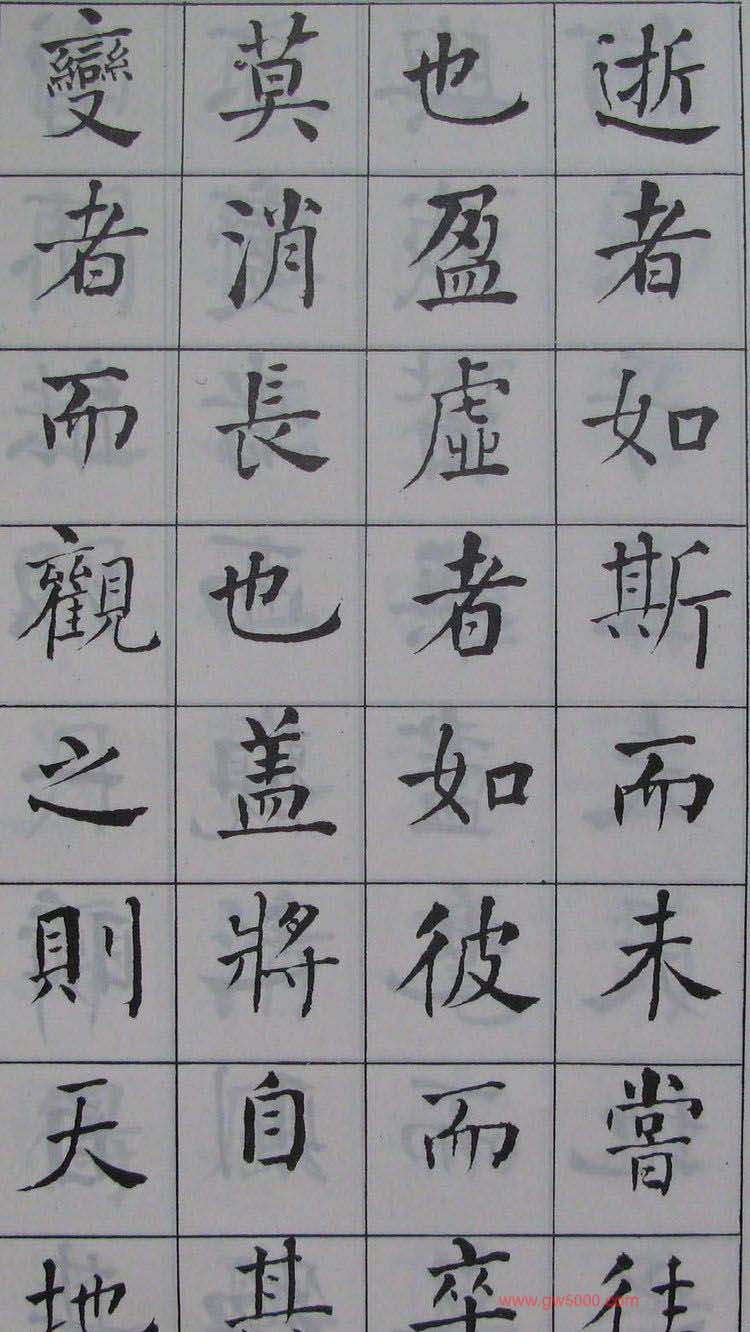 逝者如斯而未嘗往
也盈虛者如彼而卒
莫消長也盖將自其
變者而觀之則天地
www.gw5000.com